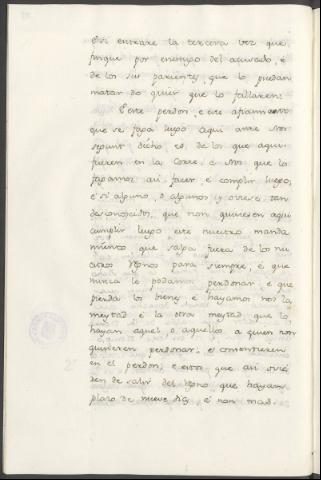 E si entrare la tercera vez que
finque por enemigo del acusado, é
de los sus parientes, que lo puedan
matar do quier que lo fallaren:
Este perdon, é este afiamiento
que se faga luego aqui ante Nos
segunt dicho es, de los que aqui
fueren en la Corte, é Nos que lo
fagamos asi facer, é complir luego,
é si alguno, o algunos y oviere tan
desconoscidos, que non quisieren aqui
cumplir luego este nuestro manda
miento que salga fuera de los nu
estros Regnos para siempre, é que
nunca le podamos perdonar, é que
pierda los bienes é hayamos nos la
meytad é la otra meytad que lo
hayan aquel, o aquellos a quien non
quisieren perdonar, é consintieren
en el perdon, é estos que asi ovie
den de salir del Regno que hayan
plazo de nueve dias, é non mas.